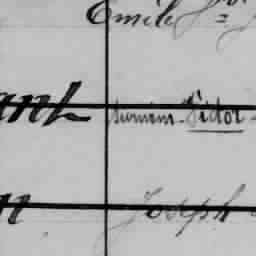 Emile J
ant Firmin Victor
n Joseph